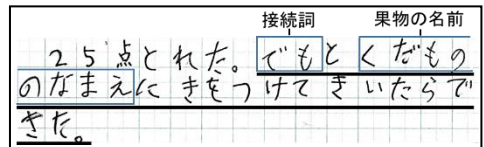 接続詞 果物の名前
25点とれた。でもとくだもの
のなまえにきをつけてきいたらで
きた。